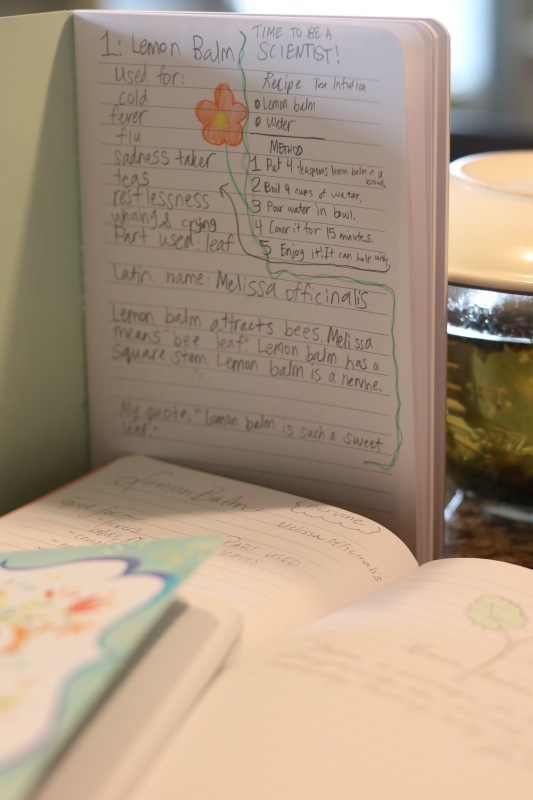 1: Lemon Balm
Used for:
cold
fever
flu
sadness taker
teas
restlessness
whining & crying
Part used: leaf
TIME TO BE A
SCIENTIST!
Recipe Tea Infution
Lemon balm
Water
METHOD
1 Put 4 teaspoons lemon balm in a
bowl.
2 Boil 4 cups of water.
3 Pour water in bowl.
4 Cover it for 15 minutes.
5 Enjoy it! It can help with
Latin name: Melissa officinalis
Lemon balm attracts bees. Melissa
means "bee leaf". Lemon balm has a
square stam. Lemon balm is a nervine.
My quote: "Lemon balm is such a sweet
leaf."
Lemon Balm
Nervine
Melissa officinalis
PART USED
leaves